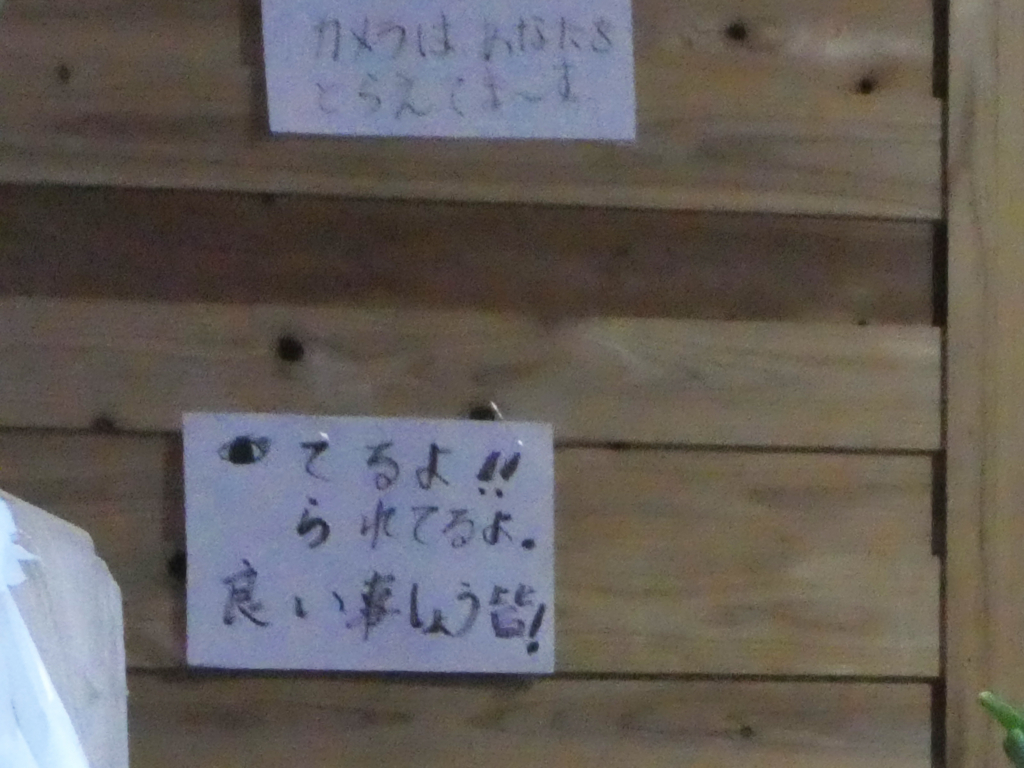 カメラはあなたを
とらえてま〜す
👁てるよ!!
られてるよ。
良い事しよう皆!